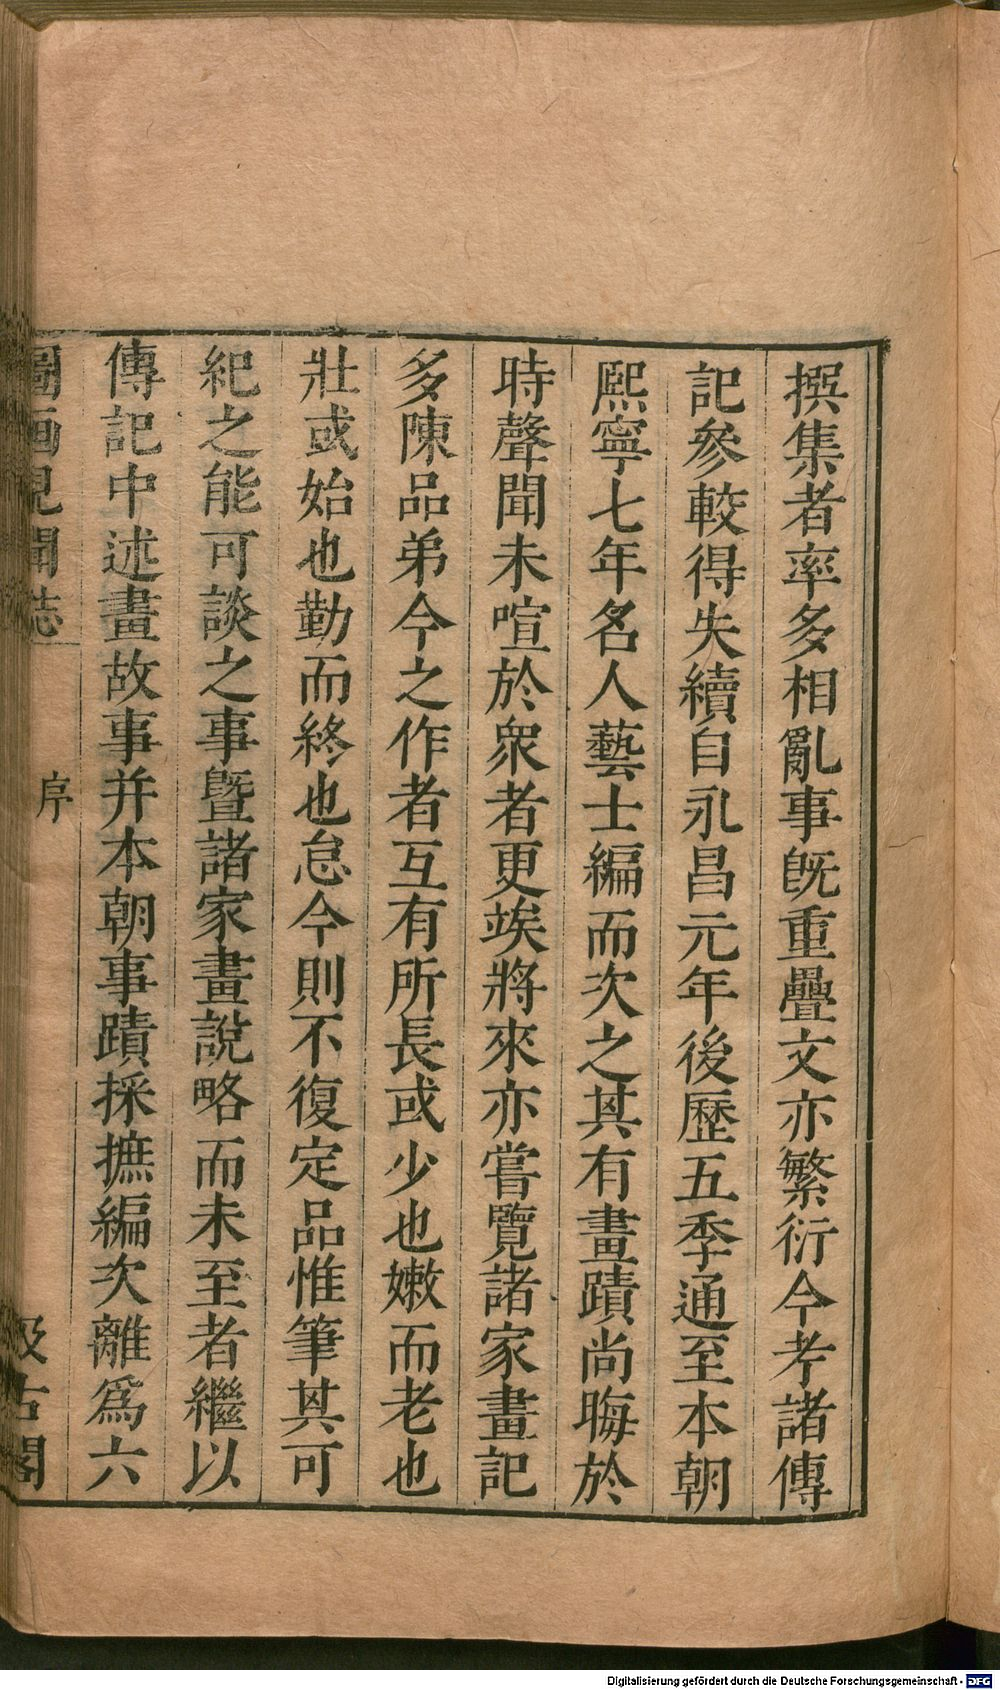 撰集者率多相亂事旣重疊文亦繁衍今考諸傳
記參較得失續自永昌元年後歷五季通至本朝
熙寧七年名人藝士編而次之其有畫蹟尚晦於
時聲聞未喧於衆者更竢將來亦嘗覽諸家畫記
多陳品弟今之作者互有所長或少也嫩而老也
壯或始也勤而終也怠今則不復定品惟筆其可
紀之能可談之事曁諸家畫說略而未至者繼以
傳記中述畫故事并本朝事蹟採摭編次離爲六
圖画見聞誌 序 汲古閣
Digitalisierung gefördert durch die Deutsche Forschungsgemeinschaft - DFG